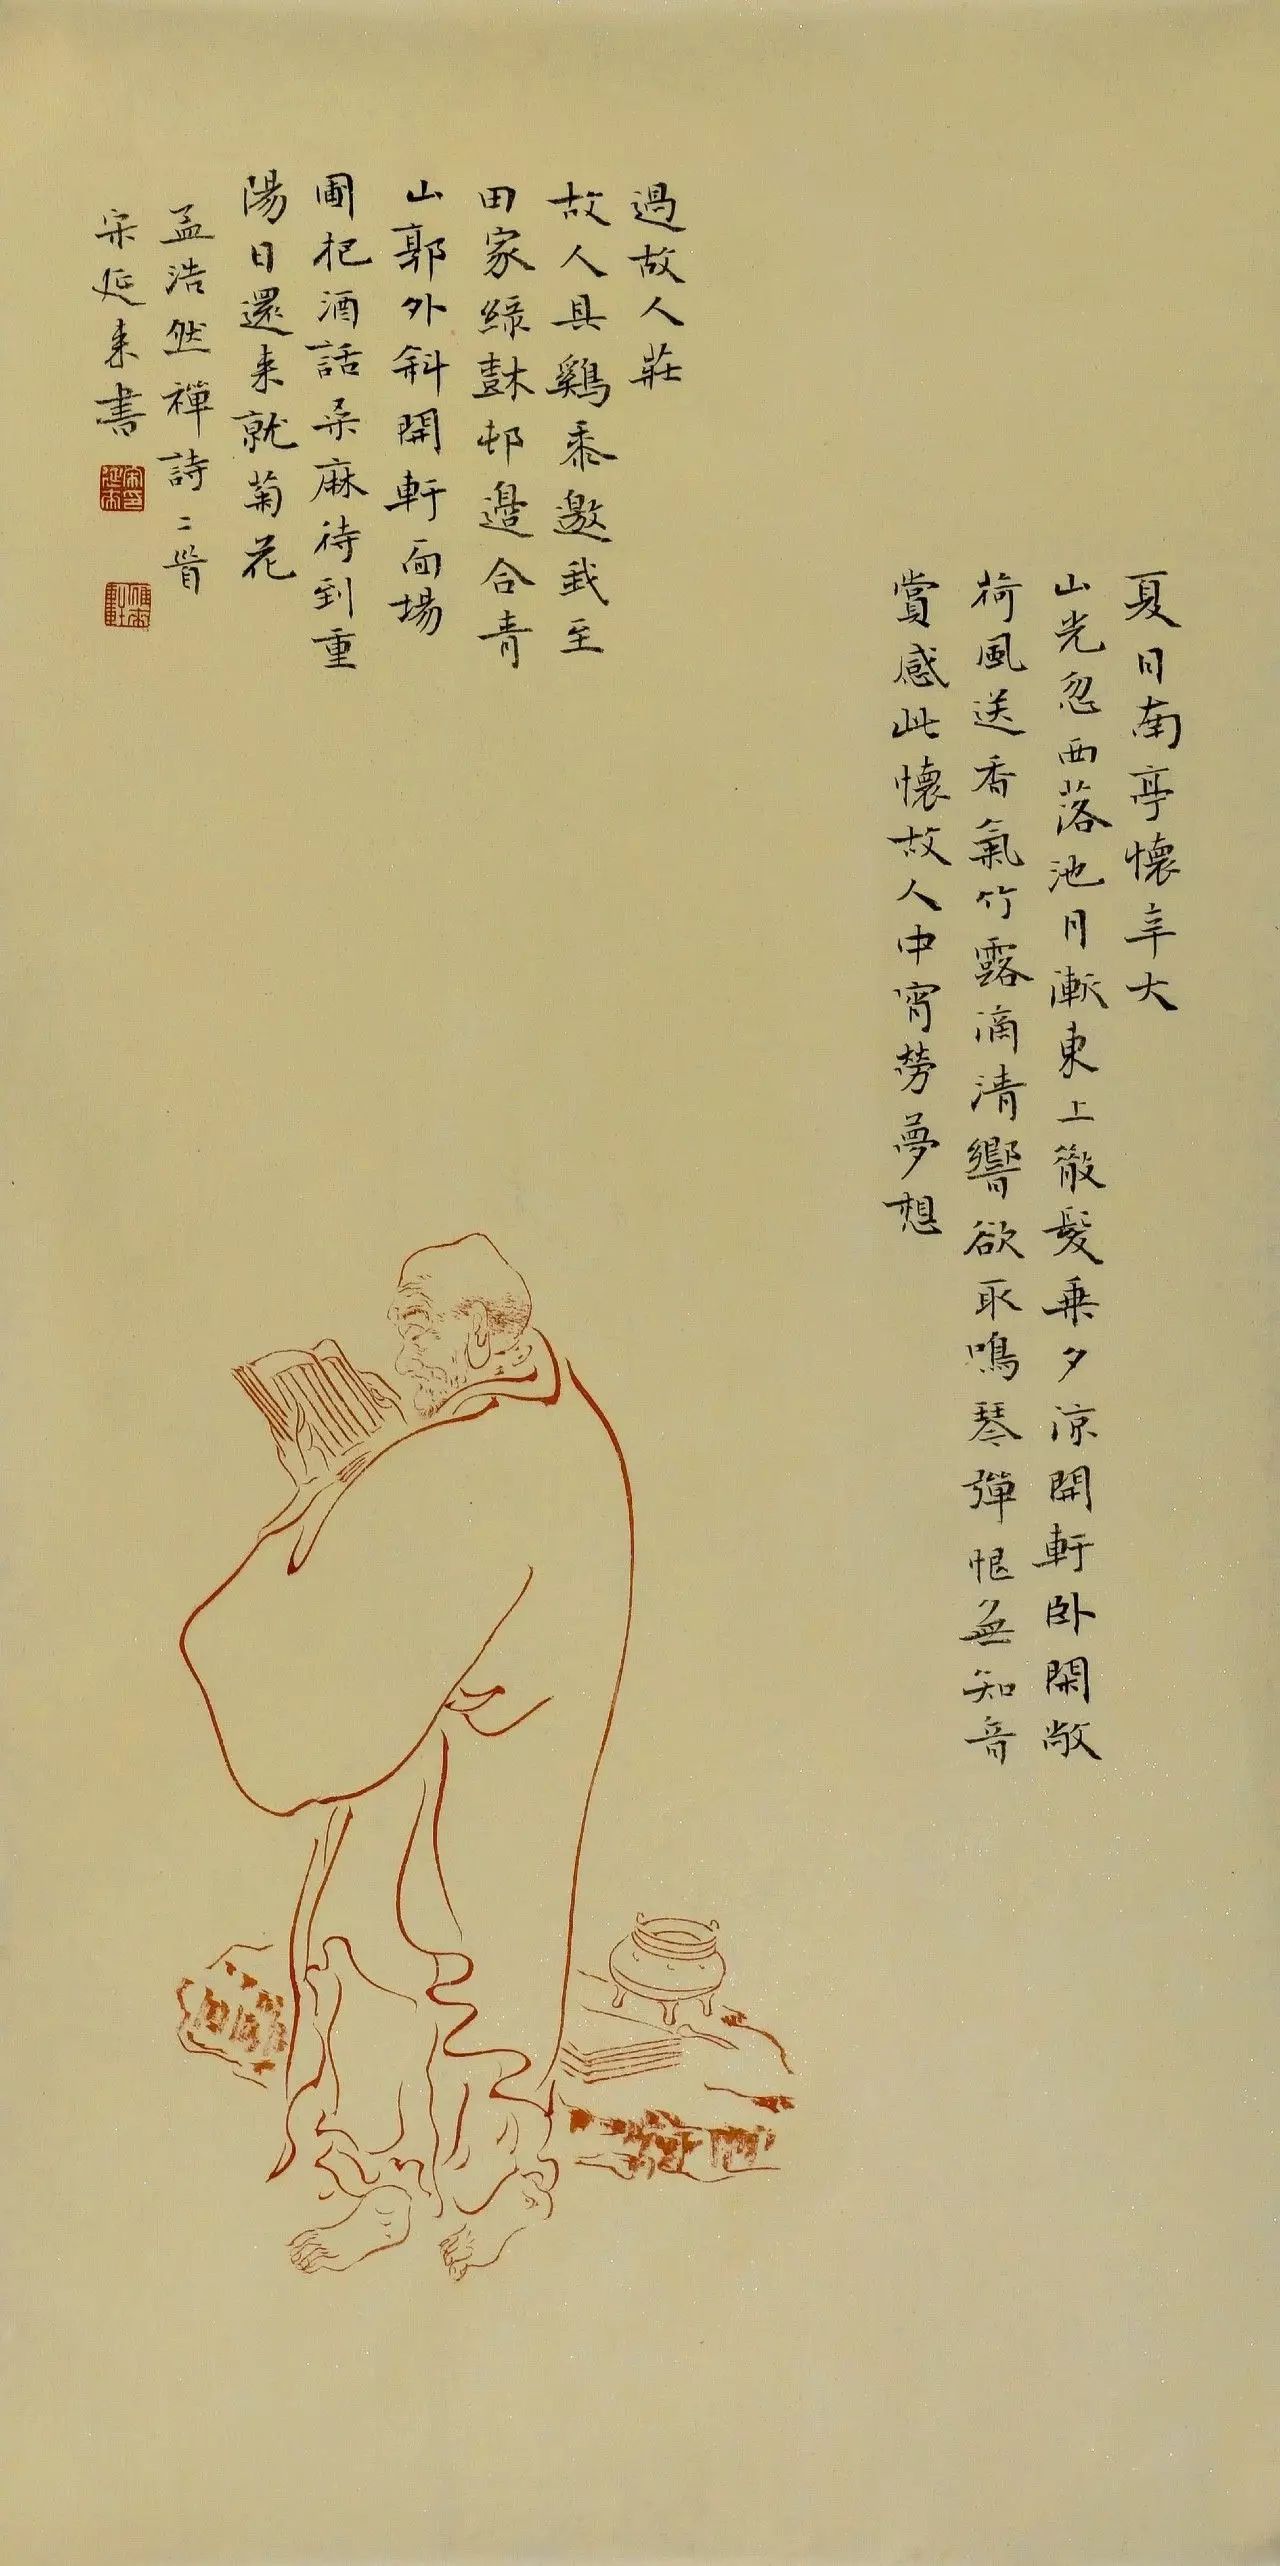 夏日南亭懷辛大
山光忽西落池月漸東上散髮乘夕涼開軒卧閑敞
荷風送香氣竹露滴清響欲取鳴琴彈恨無知音
賞感此懷故人中宵勞夢想
過故人莊
故人具鷄黍邀我至
田家綠樹邨邊合青
山郭外斜開軒面場
圃把酒話桑麻待到重
陽日還来就菊花
孟浩然禪詩二首
宋延来書